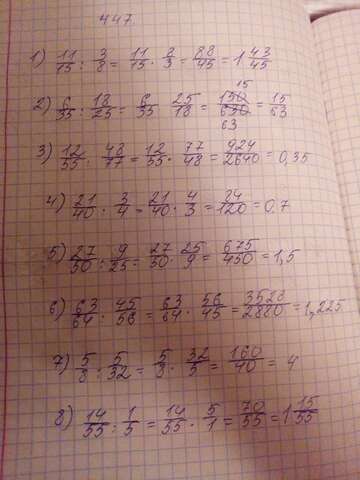 447
1) 11/15 : 3/8 = 11/15 · 8/3 = 88/45 = 1 43/45
2) 6/35 : 18/25 = 6/35 25/18 = 150/630 = 15/63
15
63
3) 12/55 : 48/77 = 12/55 · 77/48 = 924/2640 = 0,35
4) 21/40 · 3/4 = 21/40 · 4/3 = 84/120 = 0.7
5) 27/50 : 9/25 = 27/50 · 25/9 = 675/450 = 1,5
6) 63/64 : 45/56 = 63/64 · 56/45 = 3528/2880 = 1,225
7) 5/8 : 5/32 = 5/8 · 32/5 = 160/40 = 4
8) 14/55 : 1/5 = 14/55 · 5/1 = 70/55 = 1 15/55